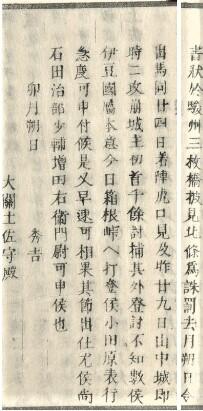 書状於駿州三枚橋被見此條爲誅罰去月朔日令
出馬同廿四日着陣虎口見及昨廿九日山中城即
時ニ攻崩城主初首千餘討捕其外登討不知數候
伊豆國屬本意今日箱根峠へ打登候小田原表行
急度可申付候是又早速可相果其節出仕尤候尚
石田治部少輔増田右衞門尉可申候也
卯月朔日
秀吉
大關土佐守殿